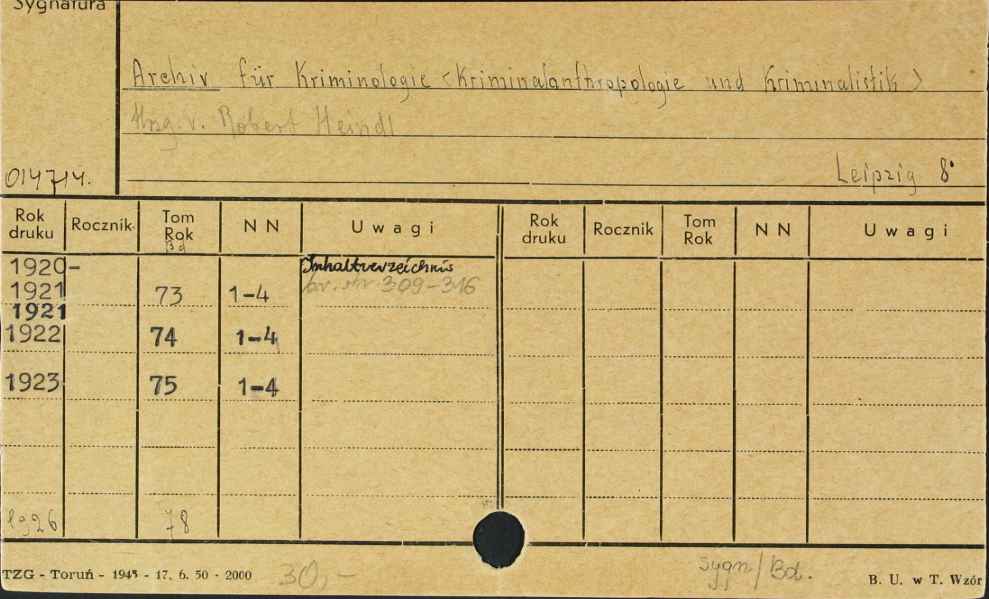 Sygnatura
Archiv für Kriminologie <Kriminalanthropologie und Kriminalistik>
Hrsg. v. Robert Heindl
014714. Leipzig 8°
Rok druku Rocznik Tom Rok Bd NN Uwagi Rok druku Rocznik Tom Rok NN Uwagi
1920- Inhaltverzeichnis
1921 73 1-4 309-316
1921
1922 74 1-4
1923 75 1-4
1926 78
TZG - Toruń - 1945 - 17. 6. 50 - 2000 30,- Sygn/Bd. B. U. w T. Wzór